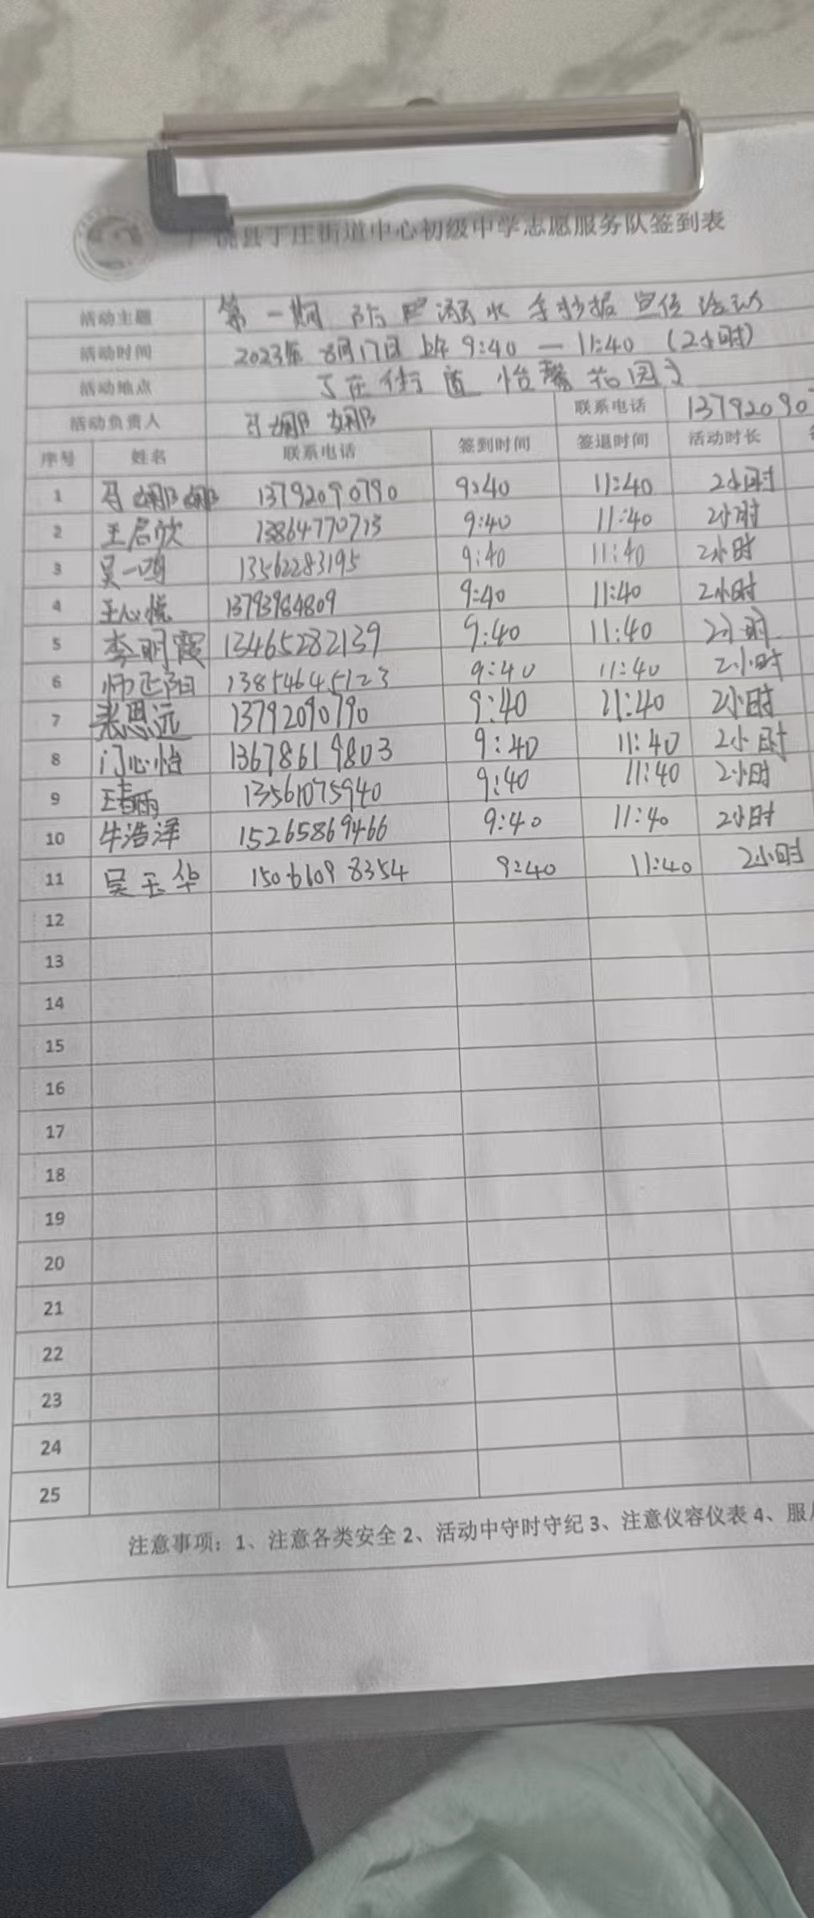 饶县丁庄街道中心初级中学志愿服务队签到表
活动主题 第一期 防溺水手抄报宣传活动
活动时间 2023年8月17日上午9:40—11:40(2小时)
活动地点 丁庄街道怡馨花园
活动负责人 马娜娜 联系电话 13792090
序号 姓名 联系电话 签到时间 签退时间 活动时长
1 马娜娜 13792090790 9:40 11:40 2小时
2 王启欣 13864770713 9:40 11:40 2小时
3 吴一鸣 13562283195 9:40 11:40 2小时
4 王心悦 13793984809 9:40 11:40 2小时
5 李明霞 13465282139 9:40 11:40 2小时
6 师正阳 13854645123 9:40 11:40 2小时
7 张思远 13792090790 9:40 11:40 2小时
8 门心怡 13678619803 9:40 11:40 2小时
9 13561075940 9:40 11:40 2小时
10 牛浩泽 15265869466 9:40 11:40 2小时
11 吴玉华 15066098354 9:40 11:40 2小时
12
13
14
15
16
17
18
19
20
21
22
23
24
25
注意事项:1、注意各类安全2、活动中守时守纪3、注意仪容仪表4、服